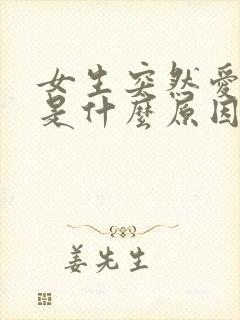 女生突然爱
是什麼原因
姜先生